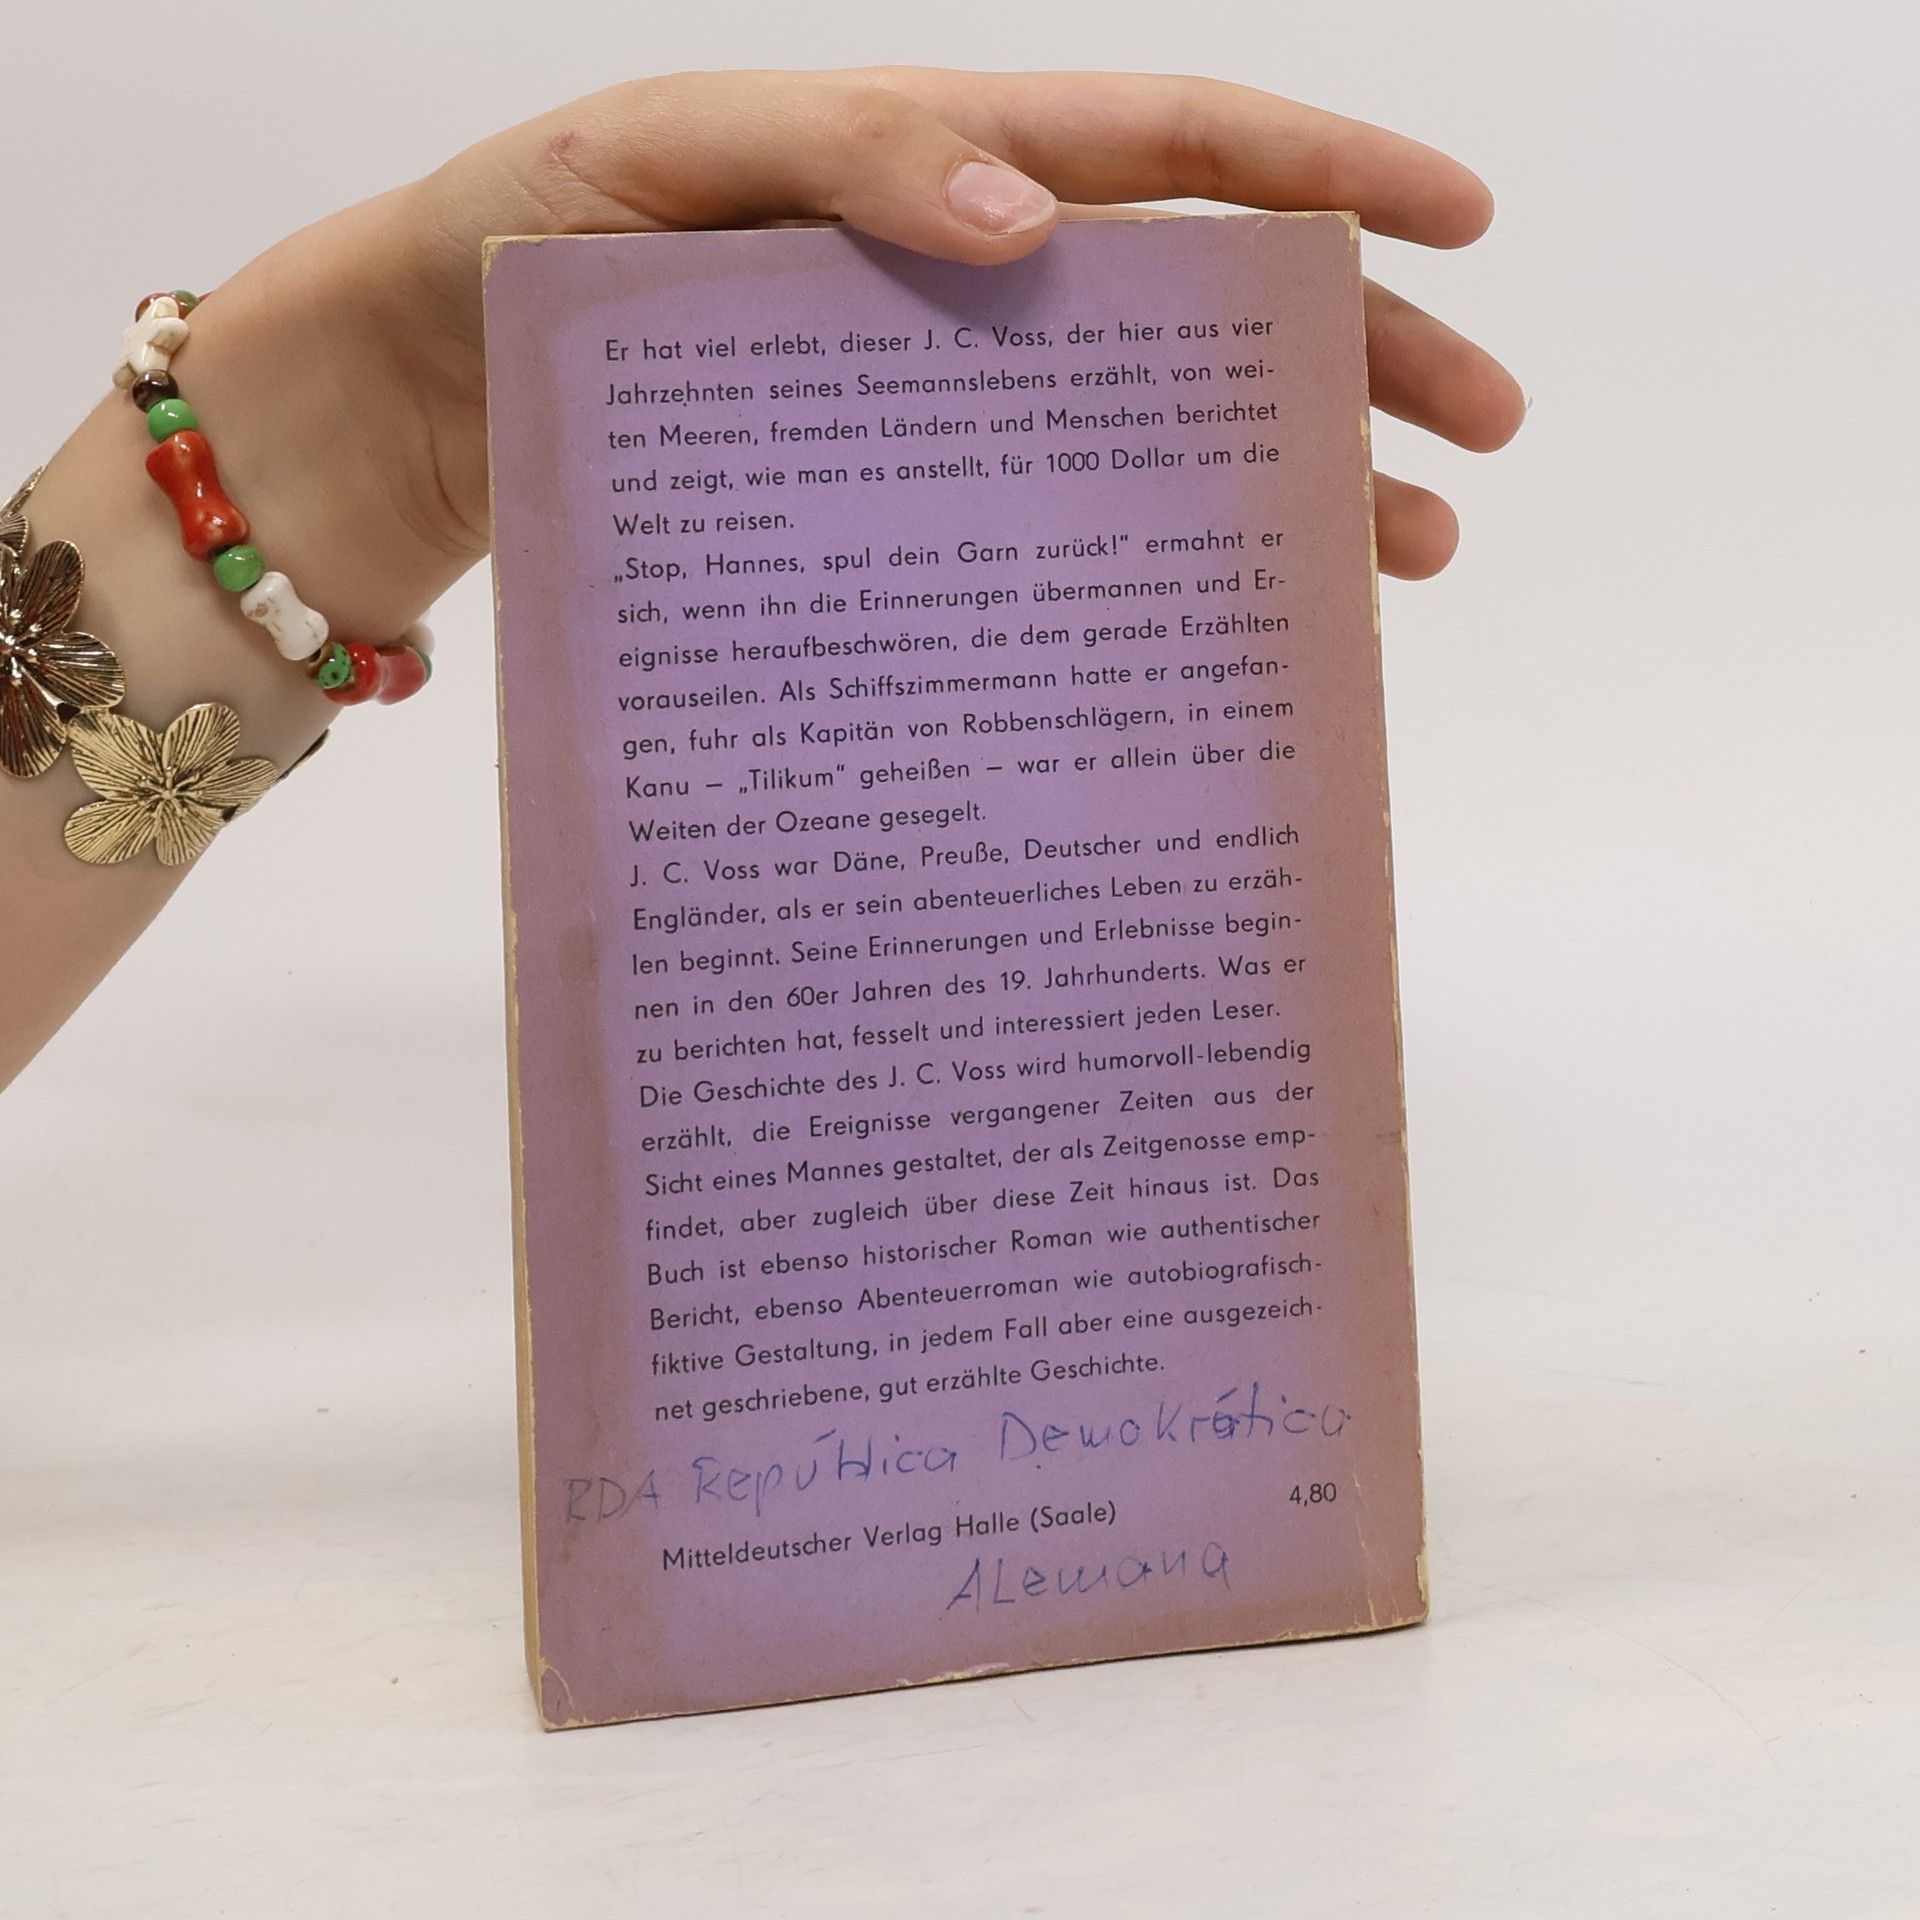 Er hat viel erlebt, dieser J. C. Voss, der hier aus vier
Jahrzehnten seines Seemannslebens erzählt, von wei-
ten Meeren, fremden Ländern und Menschen berichtet
und zeigt, wie man es anstellt, für 1000 Dollar um die
Welt zu reisen.
„Stop, Hannes, spul dein Garn zurück!“ ermahnt er
sich, wenn ihn die Erinnerungen übermannen und Er-
eignisse heraufbeschwören, die dem gerade Erzählten
vorauseilen. Als Schiffszimmermann hatte er angefan-
gen, fuhr als Kapitän von Robbenschlägern, in einem
Kanu – „Tilikum“ geheißen – war er allein über die
Weiten der Ozeane gesegelt.
J. C. Voss war Däne, Preuße, Deutscher und endlich
Engländer, als er sein abenteuerliches Leben zu erzäh-
len beginnt. Seine Erinnerungen und Erlebnisse begin-
nen in den 60er Jahren des 19. Jahrhunderts. Was er
zu berichten hat, fesselt und interessiert jeden Leser.
Die Geschichte des J. C. Voss wird humorvoll-lebendig
erzählt, die Ereignisse vergangener Zeiten aus der
Sicht eines Mannes gestaltet, der als Zeitgenosse emp-
findet, aber zugleich über diese Zeit hinaus ist. Das
Buch ist ebenso historischer Roman wie authentischer
Bericht, ebenso Abenteuerroman wie autobiografisch-
fiktive Gestaltung, in jedem Fall aber eine ausgezeich-
net geschriebene, gut erzählte Geschichte.
RDA República Demokrática
4,80
Mitteldeutscher Verlag Halle (Saale)
Alemana